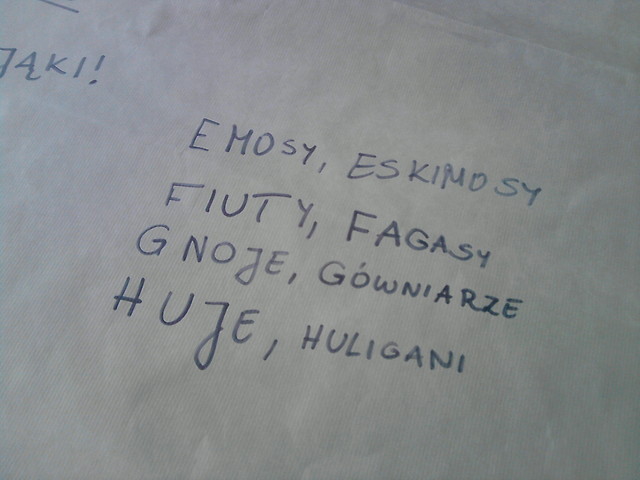 JĄKI!
EMOSY, ESKIMOSY
FIUTY, FAGASY
GNOJE, GÓWNIARZE
HUJE, HULIGANI